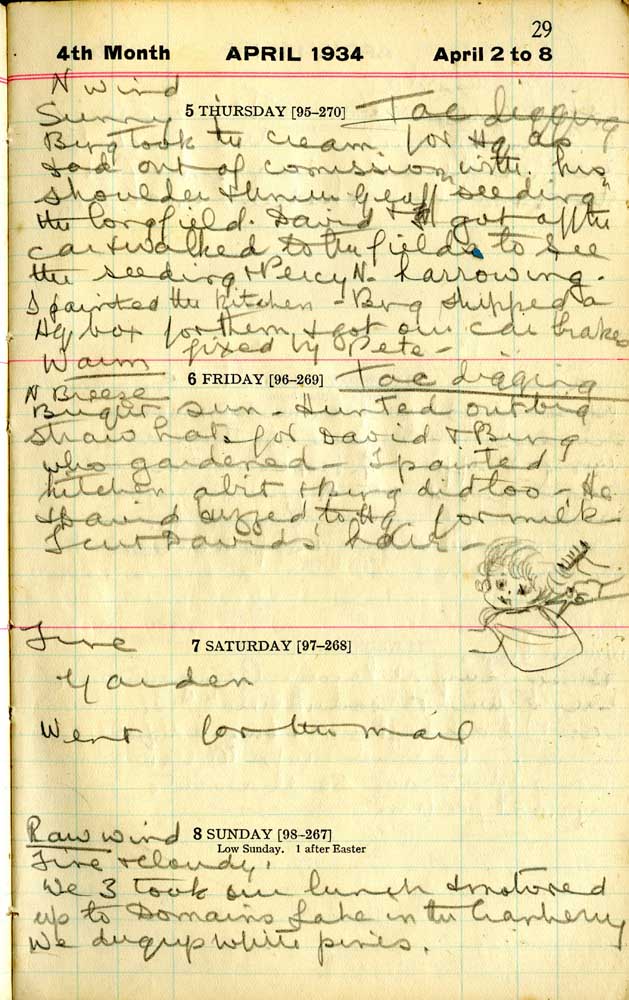 29
4th Month APRIL 1934 April 2 to 8
N wind
5 THURSDAY [95–270] Toc digging
Sunny
Berg took the cream for Hq as
Tod out of comission with his
shoulder & threw Geoff "seeding"
the longfield. David & I got off the
car & walked to the fields to see
the seeding & Percy N. harrowing.
I painted the kitchen - Berg shipped a
Hq box for them & got our car brakes
fixed by Pete -
Warm
6 FRIDAY [96–269] Toc digging
N Breeze
Bright sun - Hunted out big
straw hats for David & Berg
who gardened - I painted
kitchen abit & Berg did too - He
& David to Hq for milk
I cut Davids' hair -
Fine 7 SATURDAY [97–268]
Garden
Went for the mail
Raw wind 8 SUNDAY [98–267]
Low Sunday. 1 after Easter
Fine & cloudy.
We 3 took our lunch & motored
up to Domains Lake in the
We dug up white pines.